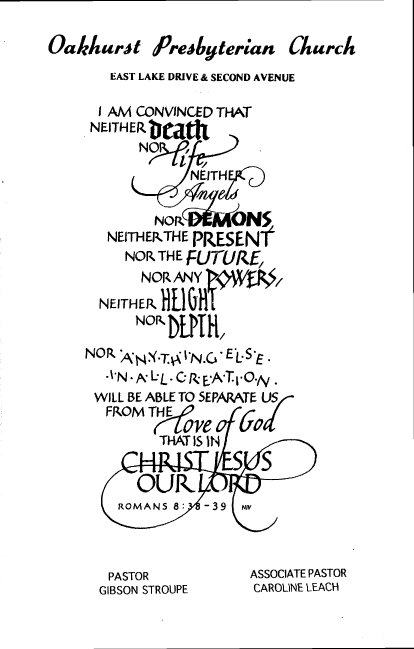 Oakhurst Presbyterian Church
EAST LAKE DRIVE & SECOND AVENUE
I AM CONVINCED THAT
NEITHER death
NOR life,
NEITHER
Angels
NOR DEMONS,
NEITHER THE PRESENT
NOR THE FUTURE,
NOR ANY POWERS,
NEITHER HEIGHT
NOR DEPTH,
NOR ·A·N·Y·T·H·I·N·G· E·L·S·E·
·I·N· A·L·L· C·R·E·A·T·I·O·N·
WILL BE ABLE TO SEPARATE US
FROM THE love of God
THAT IS IN
CHRIST JESUS
OUR LORD
ROMANS 8:38-39 NIV
PASTOR
GIBSON STROUPE
ASSOCIATE PASTOR
CAROLINE LEACH